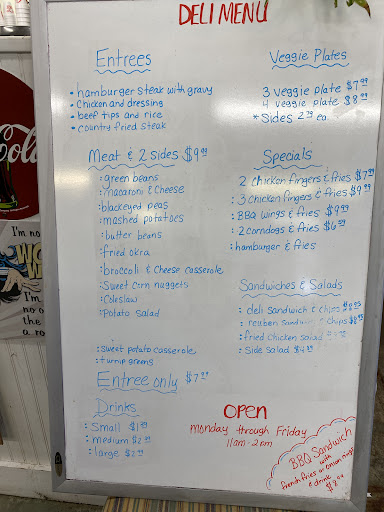 DELI MENU
Entrees
• hamburger steak with gravy
• Chicken and dressing
• beef tips and rice
• country fried steak
Meat & 2 sides $9.99
: green beans
: macaroni & Cheese
: blackeyed peas
: mashed potatoes
: butter beans
: fried okra
: broccoli & Cheese casserole
: Sweet corn nuggets
: Coleslaw
: Potato salad
: sweet potato casserole
: turnip greens
Entree only $7.99
Drinks
: Small $1.99
: medium $2.49
: large $2.99
Veggie Plates
3 veggie plate $7.99
4 veggie plate $8.99
* Sides 2.99 ea
Specials
: 2 chicken fingers & fries $7.99
: 3 chicken fingers & fries $9.99
: BBQ wings & fries $9.99
: 2 corndogs & fries $6.59
: hamburger & fries
Sandwiches & Salads
: deli sandwich & chips
: reuben & chips
: fried chicken salad
: side salad
OPEN
Monday through Friday
11am-2pm
BBQ Sandwich
with
french fries or onion rings
& drink
Cola
I'm no
I'm
no o
the
a ro